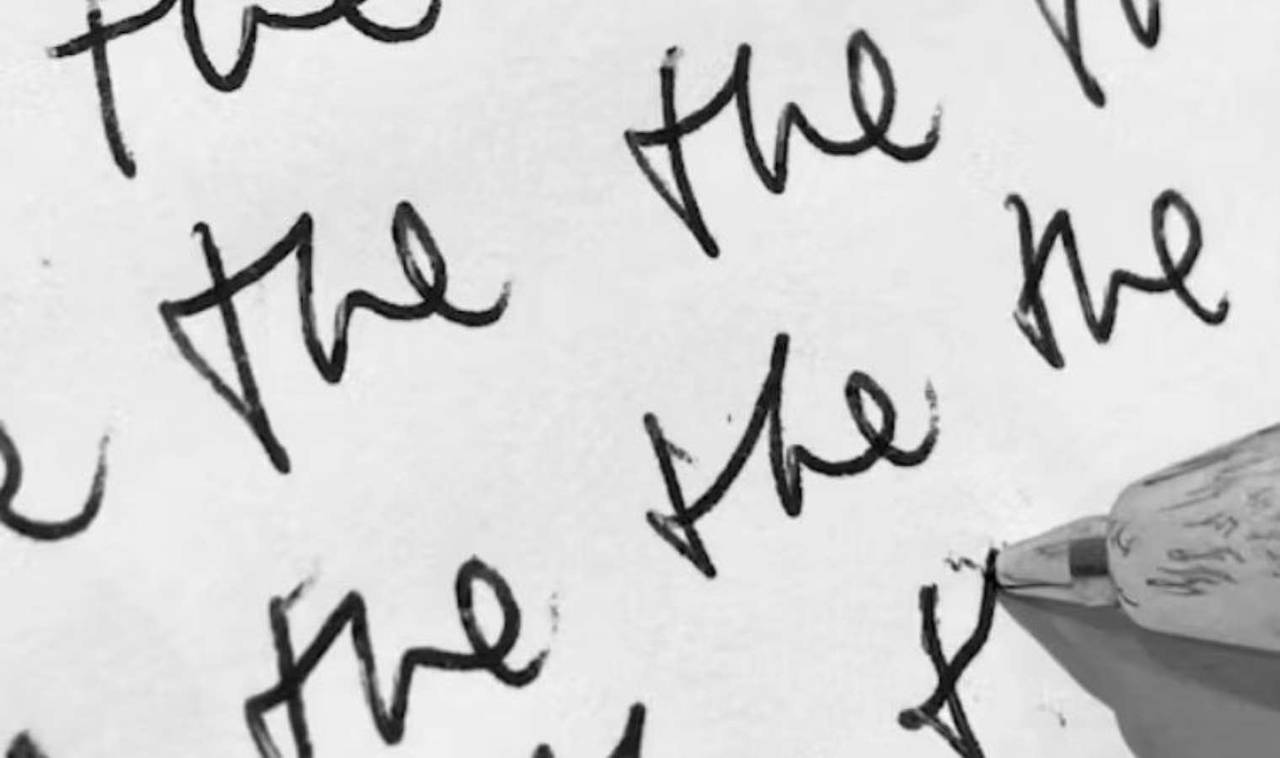 the
the
the
the
the
the